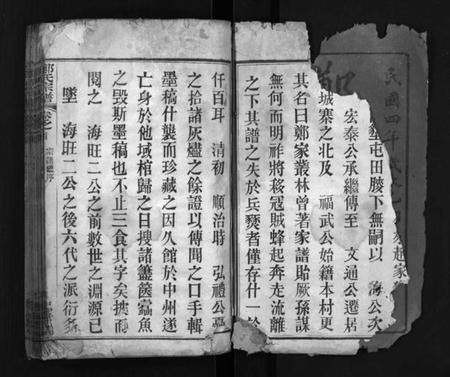 民國四年
鄭
墾屯田
膝下無嗣以
海公次
宏泰公承繼傳至
文通公遷居
城寨之北及
福武公始籍本村更
其名曰鄭家叢林曾著家譜貽厥孫謀
無何而明祚將移寇賊蜂起奔走流離
之下其譜之失於兵燹者僅存什一於
仟百耳
清初
順治時
弘禮公
之拾諸灰燼之餘證以傳聞之口手輯
墨稿什襲而珍藏之因久館於中州遂
亡身於他域棺歸之日搜諸籃篋蠹魚
之毀斯墨稿也不止三食其字矣
閱之
海旺二公之前數世之淵源已
墜
海旺二公之後六代之派衍
氏宗譜
卷之